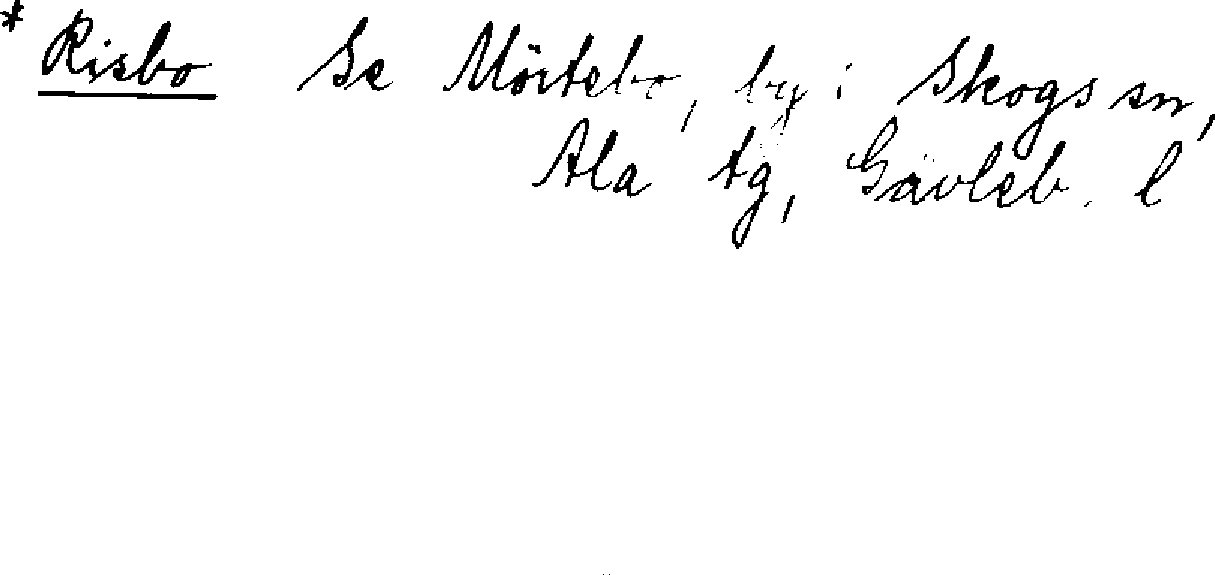 * Risbo Se Mörtebo, by i Skogs sn,
Ala tg, Gävleb. l